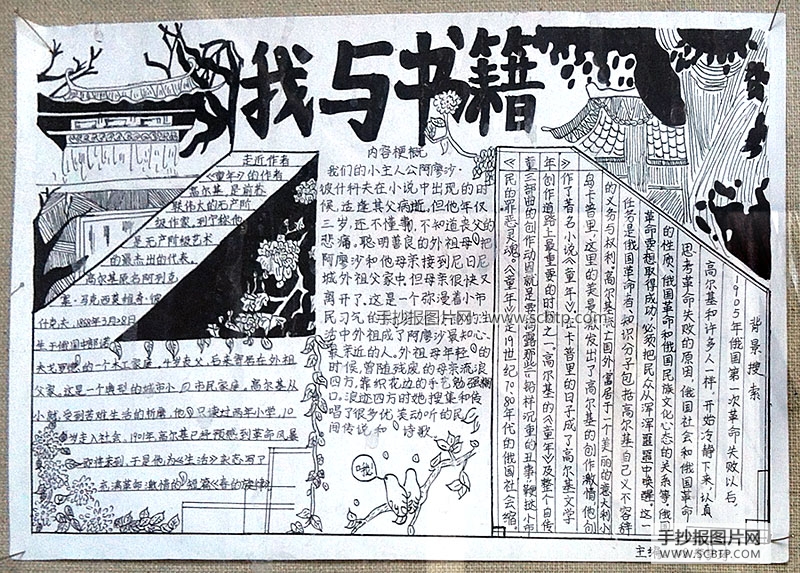 我与书籍
走近作者
《童年》的作者
高尔基,是前苏
联伟大的无产阶
级作家,列宁称他
是无产阶级艺术
的最杰出的代表。
高尔基原名阿列克
塞·马克西莫维奇·彼
什科夫,1868年3月28日
生于俄国中部诺
夫戈罗德的一个木工家庭。4岁丧父,后来寄居在外祖
父家。这是一个典型的城市小市民家庭,高尔基从
小就受到苦难生活的折磨,他只读过两年小学,10
岁走入社会。1901年,高尔基已经预感到革命风暴
即将来到,于是他为《生活》杂志写了
充满革命激情的短篇《春的旋律》
内容梗概
我们的小主人公阿廖沙·
彼什科夫在小说中出现的时
候,适逢其父病逝,但他年仅
三岁,还不懂事,不知道丧父的
悲痛,聪明善良的外祖母把
阿廖沙和他母亲接到尼日尼
城外祖父家中,但母亲很快又
离开了,这是一个弥漫着小市
民习气的
活中外祖成了阿廖沙最知心、
最亲近的人。外祖母年轻的
时候,曾随残废的母亲流浪
四方,靠织花边的手艺勉强糊
口。浪迹四方时她搜集和传
唱了很多优美动听的民
间传说和诗歌。
哦!
背景搜索
1905年俄国第一次革命失败以后,
高尔基和许多人一样,开始冷静下来,认真
思考革命失败的原因,俄国社会和俄国革命
的性质、俄国革命和俄国民族文化心态的关系等,俄国
革命要想取得成功,必须把民众从浑浑噩噩中唤醒,这一
任务是俄国革命者、知识分子包括高尔基自己义不容辞
的义务与权利。高尔基
国外,寓居于一个美丽的意大利小
岛卡普里,这里的美景
激发出了高尔基的创作激情,他创
作了著名小说《童年》。在卡普里的日子成了高尔基文学
创作道路上最重要的时
之一,高尔基的《童年》及整个自传
三部曲的创作动因就是要揭露那些“铅样沉重的丑事”,鞭挞小市
民的罪恶灵魂。《童年》是19世纪70、80年代的俄国社会缩
手抄报图片网--www.scbtp.com
手抄报图片网
WWW.SCBTP.COM
主编